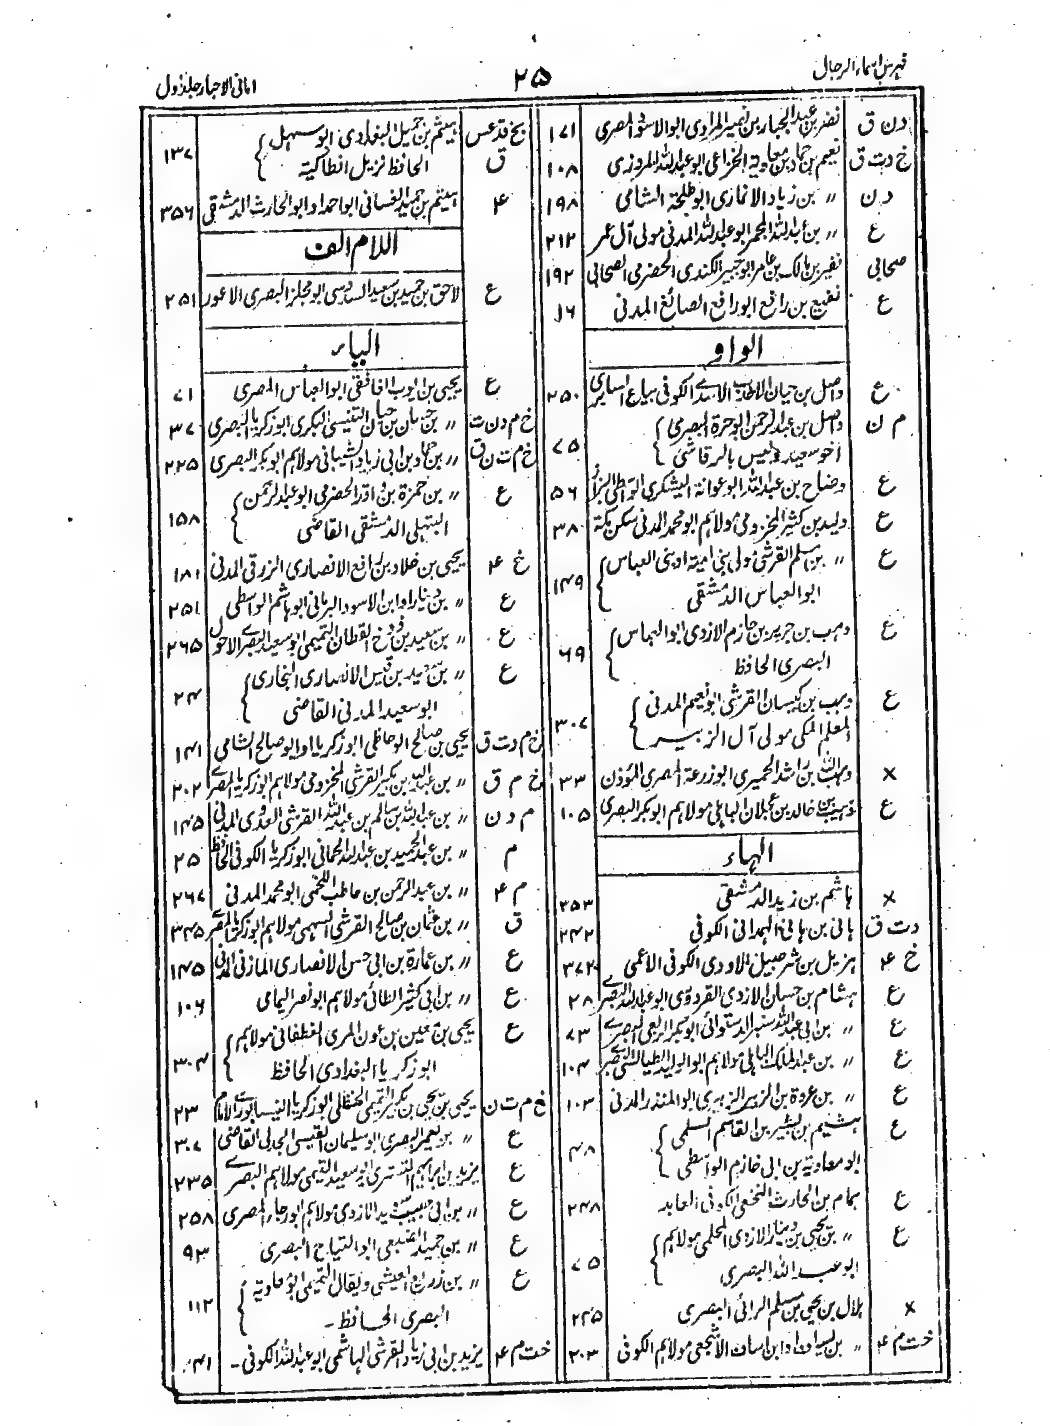 فہرس اسماء الرجال
۲۵
امانی الاحبار جلد اول
د ن ق نضر بن عبد الجبار بن نضیر المرادی ابو الاسود المصری ۱۷۱
خ د ت ق نعیم بن حماد بن معاویة الخزاعی ابو عبد الله المروزی ۱۰۸
د ن 〃 بن زیاد الانماری ابو طلحة الشامی ۱۹۸
ع 〃 بن عبد الله المجمر ابو عبد الله المدنی مولی آل عمر ۲۱۲
صحابی نفیر بن مالک بن عامر ابو جبیر الکندی الحضرمی الصحابی ۱۹۲
ع نفیع بن رافع ابو رافع الصائغ المدنی ۱۶
الواو
ع واصل بن حیان الاحدب الاسدی الکوفی بیاع السابری ۲۵۰
م ن واصل بن عبد الرحمن ابو حرة البصری
اخو سعید ولیس بالرقاشی ۷۵
ع وضاح بن عبد الله ابو عوانة الیشکری الواسطی البزاز ۵۶
ع ولید بن کثیر المخزومی مولاهم ابو محمد المدنی سکن مکة ۳۸
ع 〃 بن مسلم القرشی مولی بنی امیة او بنی العباس
ابو العباس الدمشقی ۱۴۹
ع وهب بن جریر بن حازم الازدی ابو العباس
البصری الحافظ ۶۹
ع وهب بن کیسان القرشی ابو نعیم المدنی
المعلم المکی مولی آل الزبیر ۳۰۷
× وهب الله بن راشد الحمیری ابو زرعة المصری المؤذن ۳۳
ع وهیب بن خالد بن عجلان الباهلی مولاهم ابو بکر البصری ۱۰۵
الهاء
× هاشم بن زید الدمشقی ۲۵۳
د ت ق هانی بن هانی الهمدانی الکوفی ۲۴۲
خ ۴ هزیل بن شرحبیل الاودی الکوفی الاعمی ۳۷۲
ع هشام بن حسان الازدی القردوسی ابو عبد الله البصری ۲۸
ع 〃 بن ابی عبد الله سنبر الدستوائی ابو بکر الربعی البصری ۷۳
ع 〃 بن عبد الملک الباهلی مولاهم ابو الولید الطیالسی البصری ۱۰۴
ع 〃 بن عروة بن الزبیر الزبیری ابو المنذر المدنی ۱۰۳
ع هشیم بن بشیر بن القاسم السلمی
ابو معاویة بن ابی خازم الواسطی ۴۸
ع همام بن الحارث النخعی الکوفی العابد ۲۴۸
ع 〃 بن یحیی بن دینار الازدی المحلمی مولاهم
ابو عبد الله البصری ۷۵
× هلال بن یحیی بن مسلم الرائی البصری ۲۴۵
خت م ۴ 〃 بن یساف او ابن اساف الاشجعی مولاهم الکوفی ۲۰۳
بخ قد عس هیثم بن جمیل البغدادی ابو سهل
ق الحافظ نزیل انطاکیة ۱۳۷
۴ هیثم بن حمید الغسانی ابو احمد او ابو الحارث الدمشقی ۳۵۶
اللام الف
ع لاحق بن حمید بن سعید السدوسی ابو مجلز البصری الاعور ۲۵۱
الیاء
ع یحیی بن ایوب الغافقی ابو العباس المصری ۷۱
خ م د ن ت 〃 بن حسان بن حیان التنیسی البکری ابو زکریا البصری ۳۷
خ م ت ن ق 〃 بن حماد بن ابی زیاد الشیبانی مولاهم ابو بکر البصری ۲۲۵
ع 〃 بن حمزة بن واقد الحضرمی ابو عبد الرحمن
البتهلی الدمشقی القاضی ۱۵۸
خ ۴ یحیی بن خلاد بن رافع الانصاری الزرقی المدنی ۱۸۱
ع 〃 بن دینار او ابن الاسود الرمانی ابو هاشم الواسطی ۲۵۱
ع 〃 بن سعید بن فروخ القطان التمیمی ابو سعید البصری الاحول ۲۶۵
ع 〃 بن سعید بن قیس الانصاری النجاری
ابو سعید المدنی القاضی ۲۴
خ م د ت ق یحیی بن صالح الوحاظی ابو زکریا او ابو صالح الشامی ۱۴۱
خ م ق 〃 بن عبد الله بن بکیر القرشی المخزومی مولاهم ابو زکریا المصری ۲۰۲
م د ن 〃 بن عبد الله بن سالم بن عبد الله القرشی العدوی المدنی ۱۴۵
م 〃 بن عبد الحمید بن عبد الله الحمانی ابو زکریا الکوفی الحافظ ۲۵
م ۴ 〃 بن عبد الرحمن بن حاطب اللخمی ابو محمد المدنی ۲۶۷
ق 〃 بن عثمان بن صالح القرشی السهمی مولاهم ابو زکریا المصری ۳۴۵
ع 〃 بن عمارة بن ابی حسن الانصاری المازنی المدنی ۱۴۵
ع 〃 بن ابی کثیر الطائی مولاهم ابو نصر الیمامی ۱۰۶
ع یحیی بن معین بن عون المری الغطفانی مولاهم
ابو زکریا البغدادی الحافظ ۳۰۴
خ م ت ن یحیی بن یحیی بن بکیر التمیمی الحنظلی ابو زکریا النیسابوری الامام ۲۳
ع 〃 بن یعمر البصری ابو سلیمان القیسی الجدلی القاضی ۳۰۷
ع یزید بن ابراهیم التستری ابو سعید التمیمی مولاهم البصری ۲۳۵
ع 〃 بن ابی حبیب سوید الازدی مولاهم ابو رجاء المصری ۲۵۸
ع 〃 بن حمید الضبعی ابو التیاح البصری ۹۳
ع 〃 بن زریع العیشی ویقال التمیمی ابو معاویة
البصری الحافظ - ۱۱۲
خت م ۴ یزید بن ابی زیاد القرشی الهاشمی ابو عبد الله الکوفی - ۱۴۱